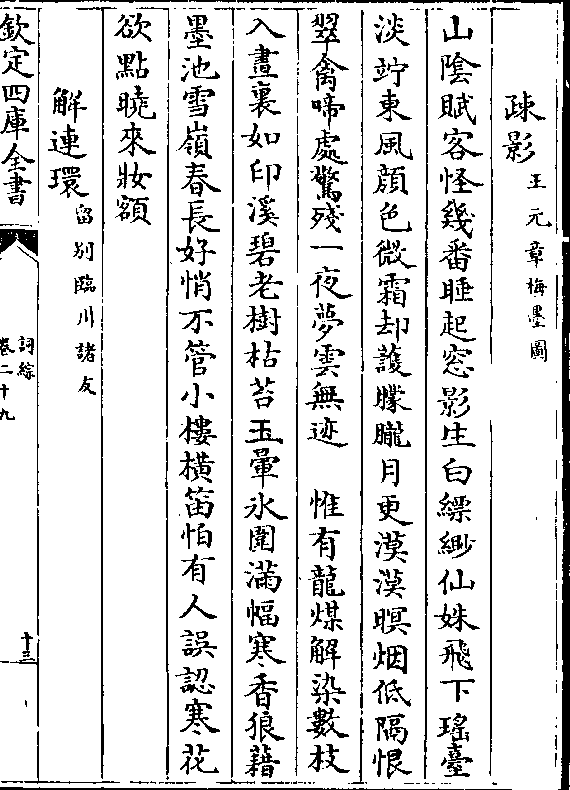 疎影王元章梅墨圖
山陰賦客怪幾番睡起窓影生白縹緲仙姝飛下瑤臺
淡竚東風顔色微霜却護朦朧月更漠漠暝烟低隔恨
翠禽啼處驚殘一夜夢雲無迹　惟有龍煤解染數枝
入畫裏如印溪碧老樹枯苔玉暈氷圍滿幅寒香狼藉
墨池雪嶺春長好悄不管小樓横笛怕有人誤認寒花
欲點曉來妝額
解連環留别臨川諸友
欽定四庫全書
詞綜
卷二十九
十三